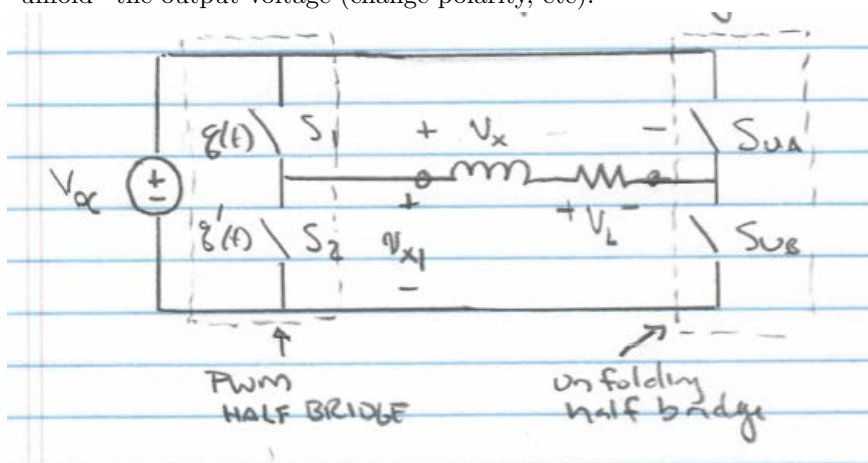 unfold" the output voltage (change polarity, etc).
q(t) S1 + Vx - SUA
VDC + -
+ VL -
q'(t) S2 + Vx1 - SUB
PWM
HALF BRIDGE
unfolding
half bridge